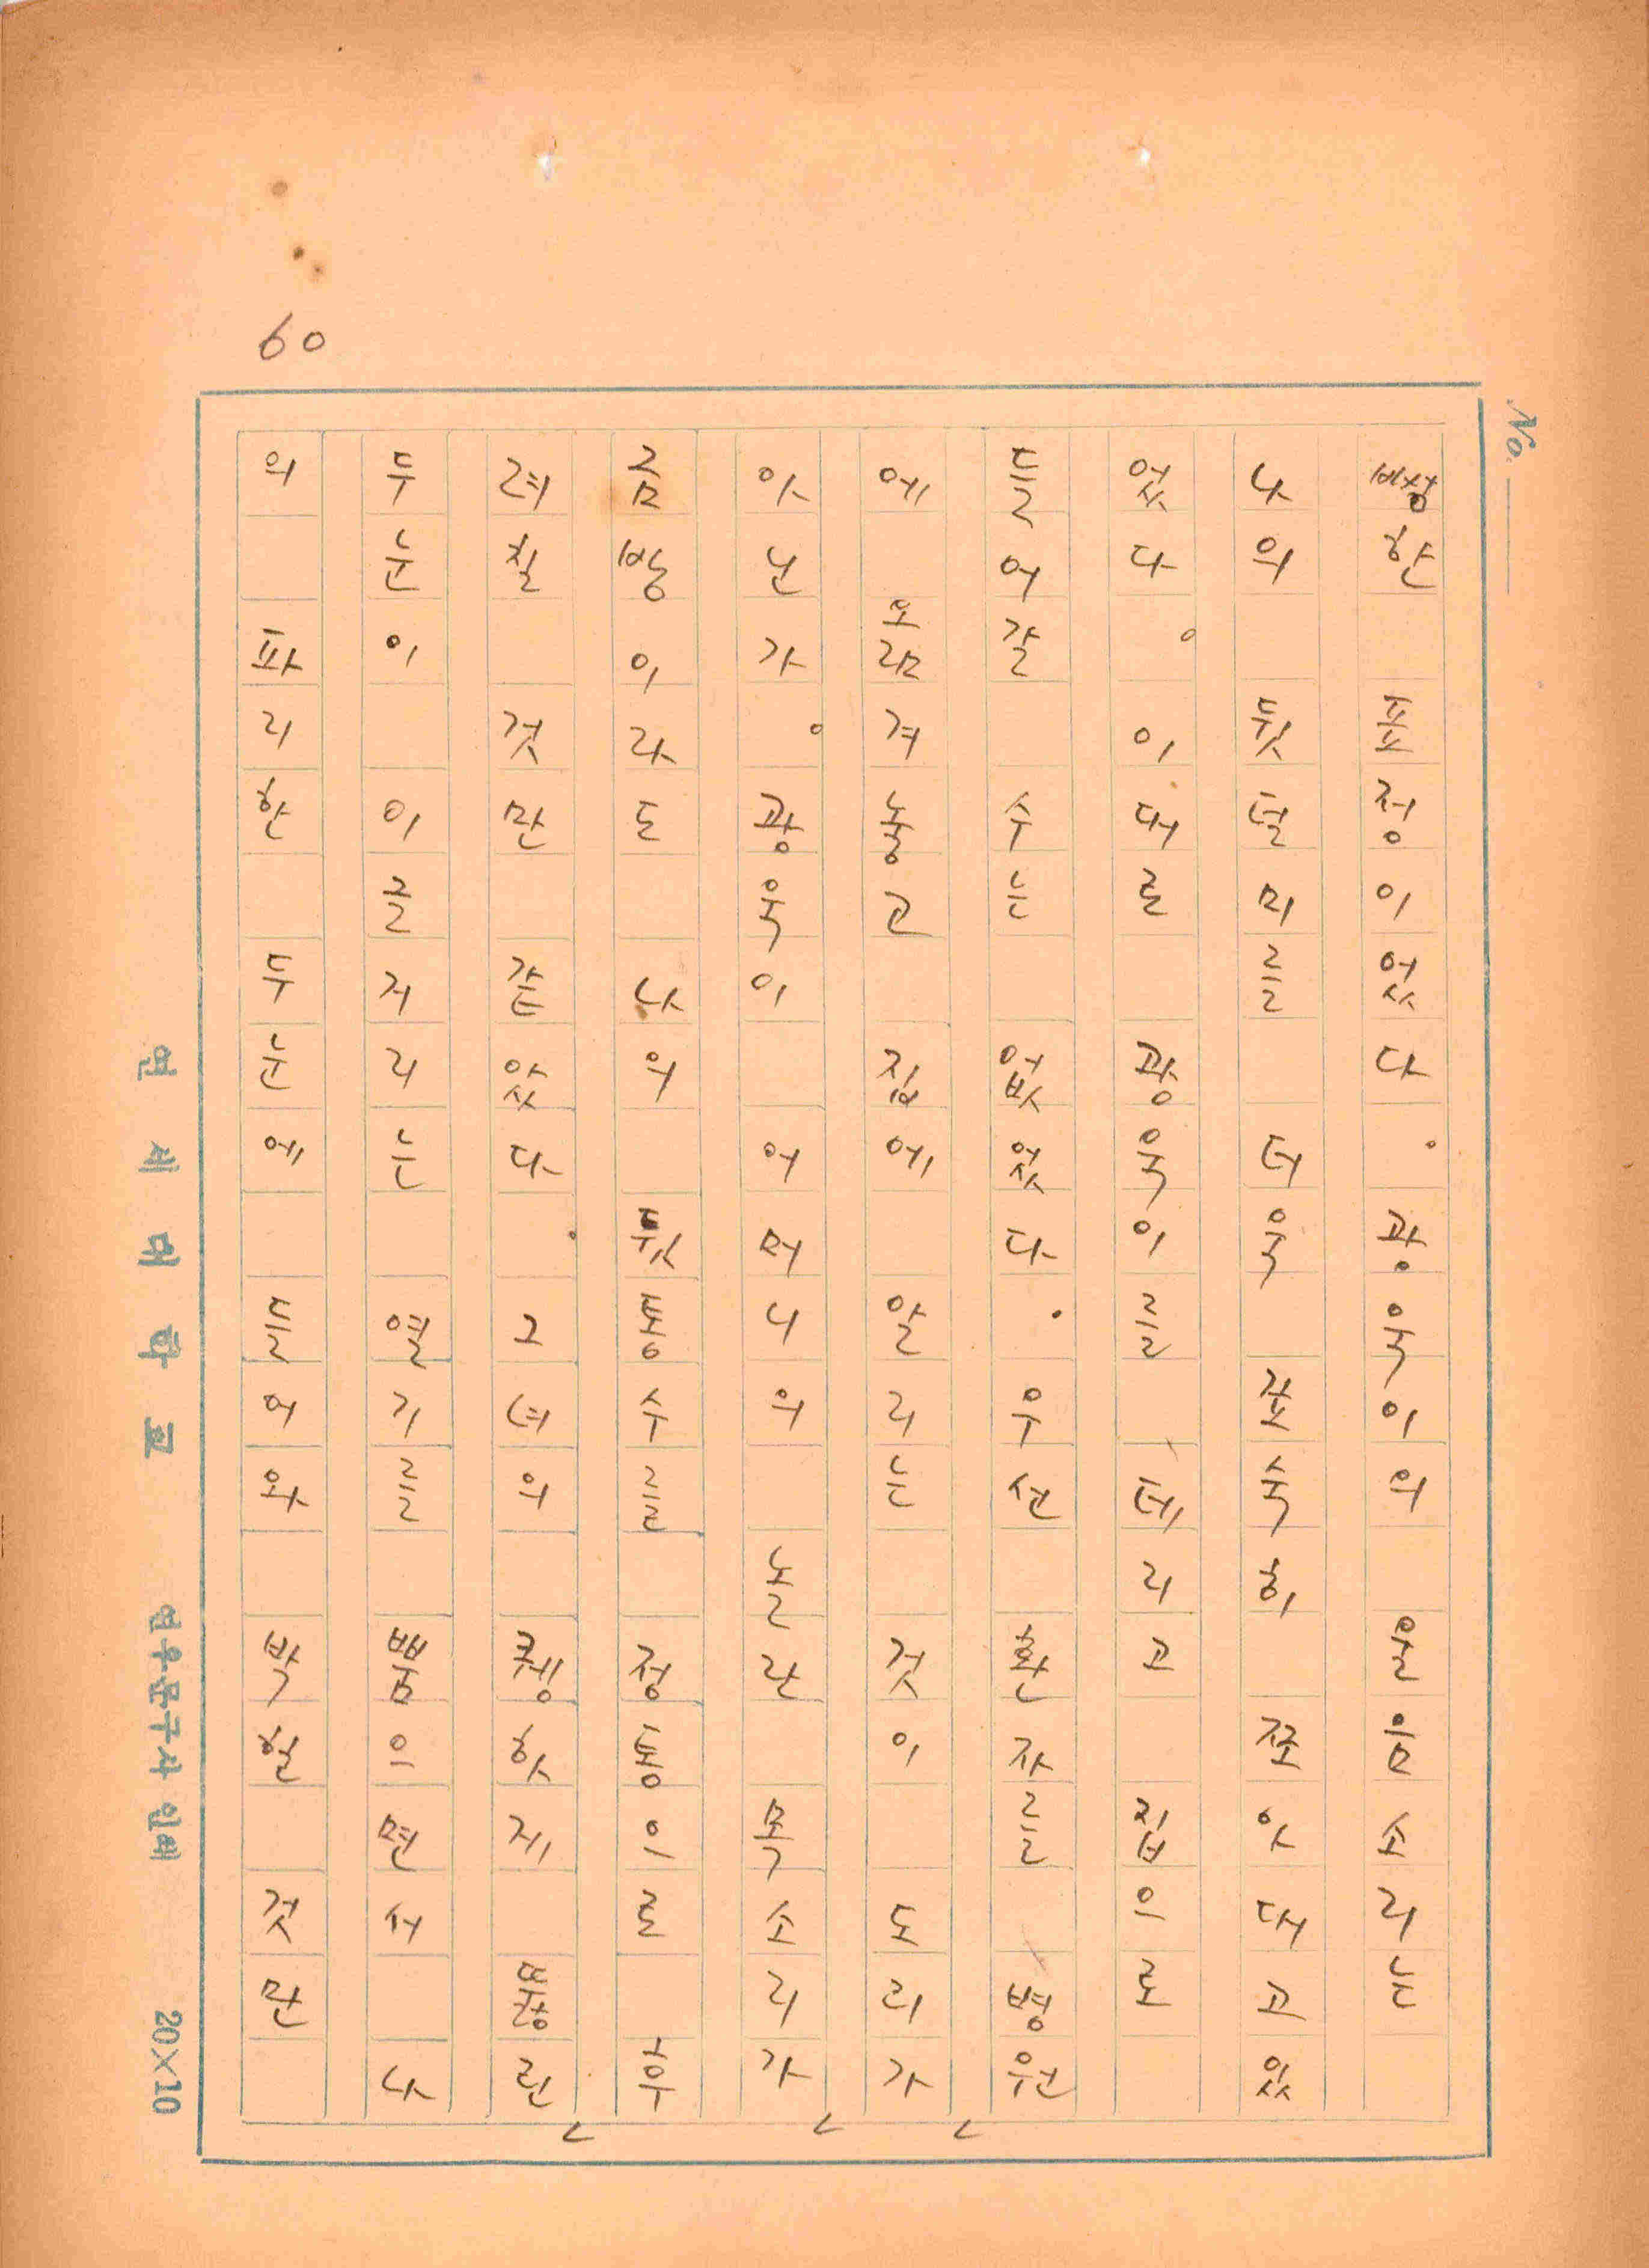 비장한 표정이었다. 광욱이의 울음소리는
나의 뒷덜미를 더욱 깊숙히 쪼아대고 있
었다. 이대로 광욱이를 데리고 집으로
들어갈 수는 없었다. 우선 환자를 병원
에 옮겨놓고 집에 알리는 것이 도리가
아닌가. 광욱이 어머니의 놀란 목소리가
금방이라도 나의 뒷통수를 정통으로 후
려칠 것만 같았다. 그녀의 퀭하게 뚫린
두 눈이 이글거리는 열기를 뿜으면서 나
의 파리한 두 눈에 들어와 박힐 것만
60
No.
연세대학교 연우문구사 인쇄 20×10